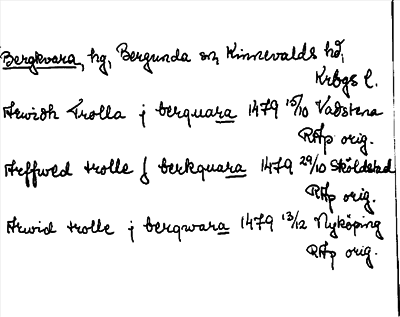 Bergkvara, hg, Bergunda sn, Kinnevalds hd,
Krbgs l.
Arwidh Trolla j berquara 1479 15/10 Vadstena
RAp orig.
Arffwed trolle j berkquara 1479 29/10 Sköldstad
RAp orig.
Arwid trolle j bergwara 1479 13/12 Nyköping
RAp orig.